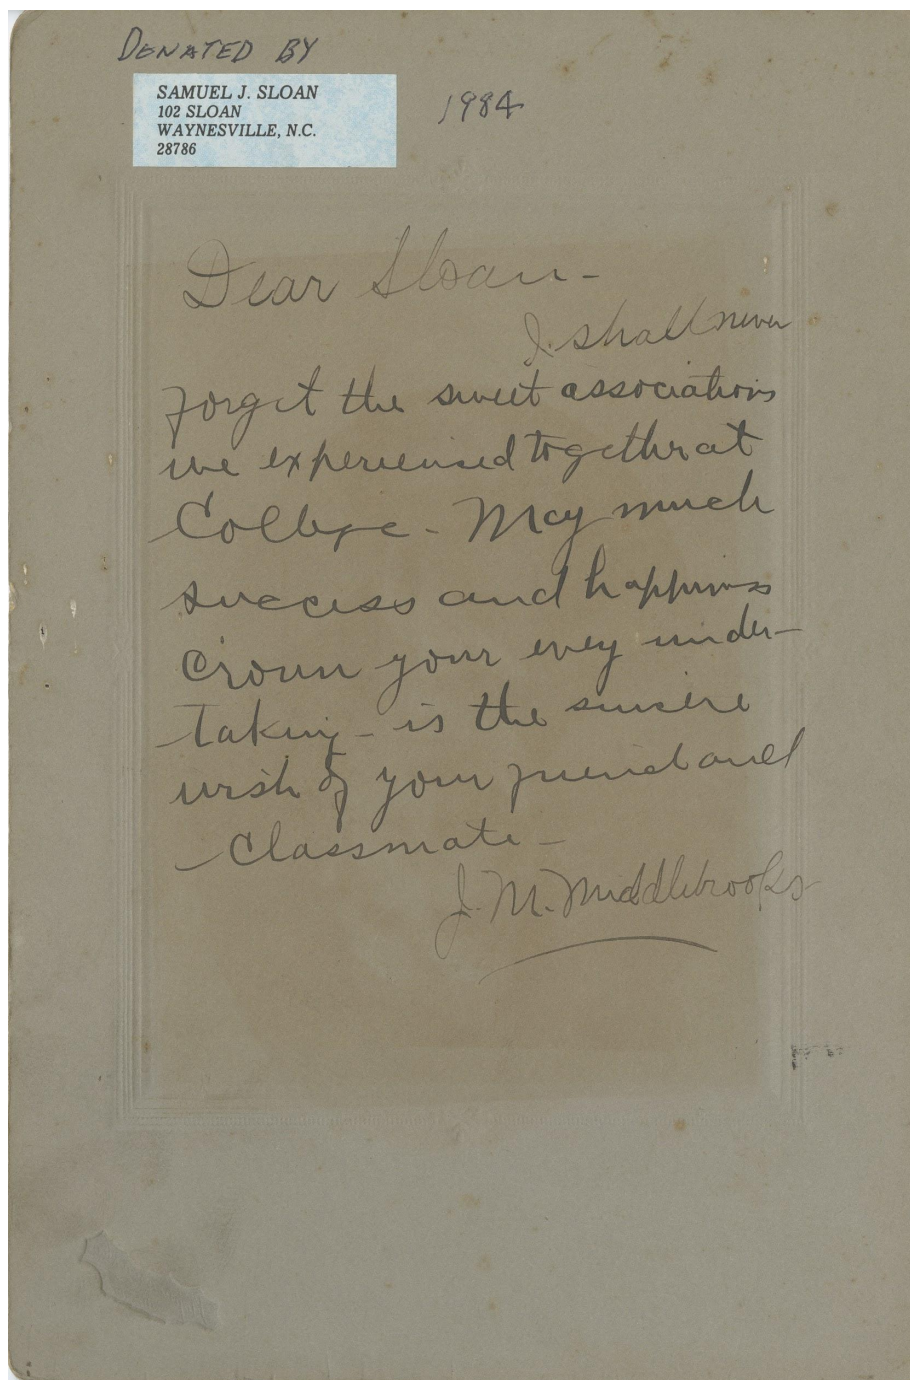 DENATED BY
SAMUEL J. SLOAN
102 SLOAN
WAYNESVILLE, N.C.
28786
1984
Dear Sloan-
I shall never
forget the sweet associations
we experienced together at
College - May much
success and happiness
crown your every under-
taking - is the sincere
wish of your friend and
Classmate -
J. M. Middlebrooks